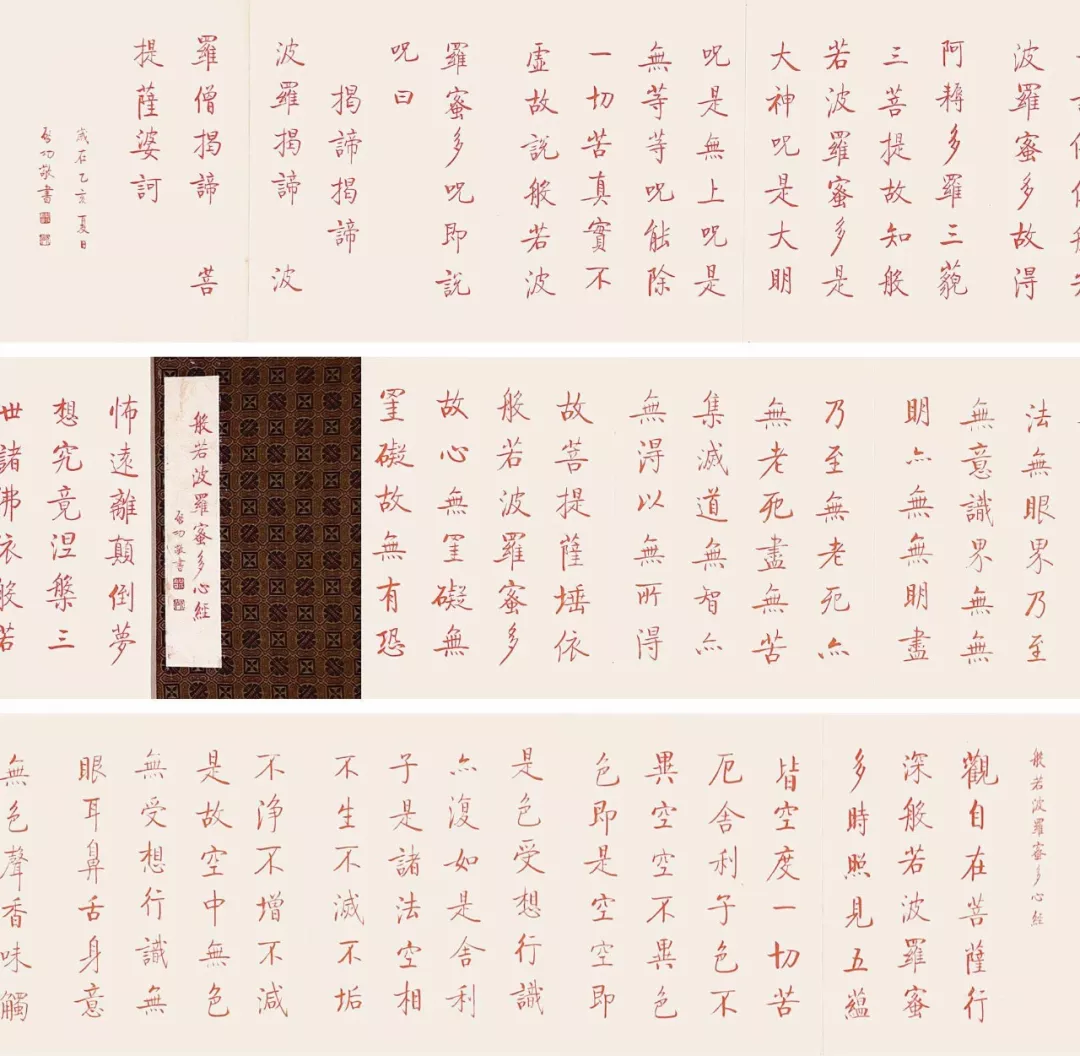 般若波羅蜜多心經
觀自在菩薩行
深般若波羅蜜
多時照見五蘊
皆空度一切苦
厄舍利子色不
異空空不異色
色即是空空即
是色受想行識
亦復如是舍利
子是諸法空相
不生不滅不垢
不淨不增不減
是故空中無色
無受想行識無
眼耳鼻舌身意
無色聲香味觸
法無眼界乃至
無意識界無無
明亦無無明盡
乃至無老死亦
無老死盡無苦
集滅道無智亦
無得以無所得
故菩提薩埵依
般若波羅蜜多
故心無罣礙無
罣礙故無有恐
般若波羅蜜多心經
啓功敬書
怖遠離顛倒夢
想究竟涅槃三
世諸佛依般若
波羅蜜多故得
阿耨多羅三藐
三菩提故知般
若波羅蜜多是
大神呪是大明
呪是無上呪是
無等等呪能除
一切苦真實不
虛故說般若波
羅蜜多呪即說
呪曰
揭諦揭諦
波羅揭諦 波
羅僧揭諦 菩
提薩婆訶
歲在乙亥夏日
啓功敬書